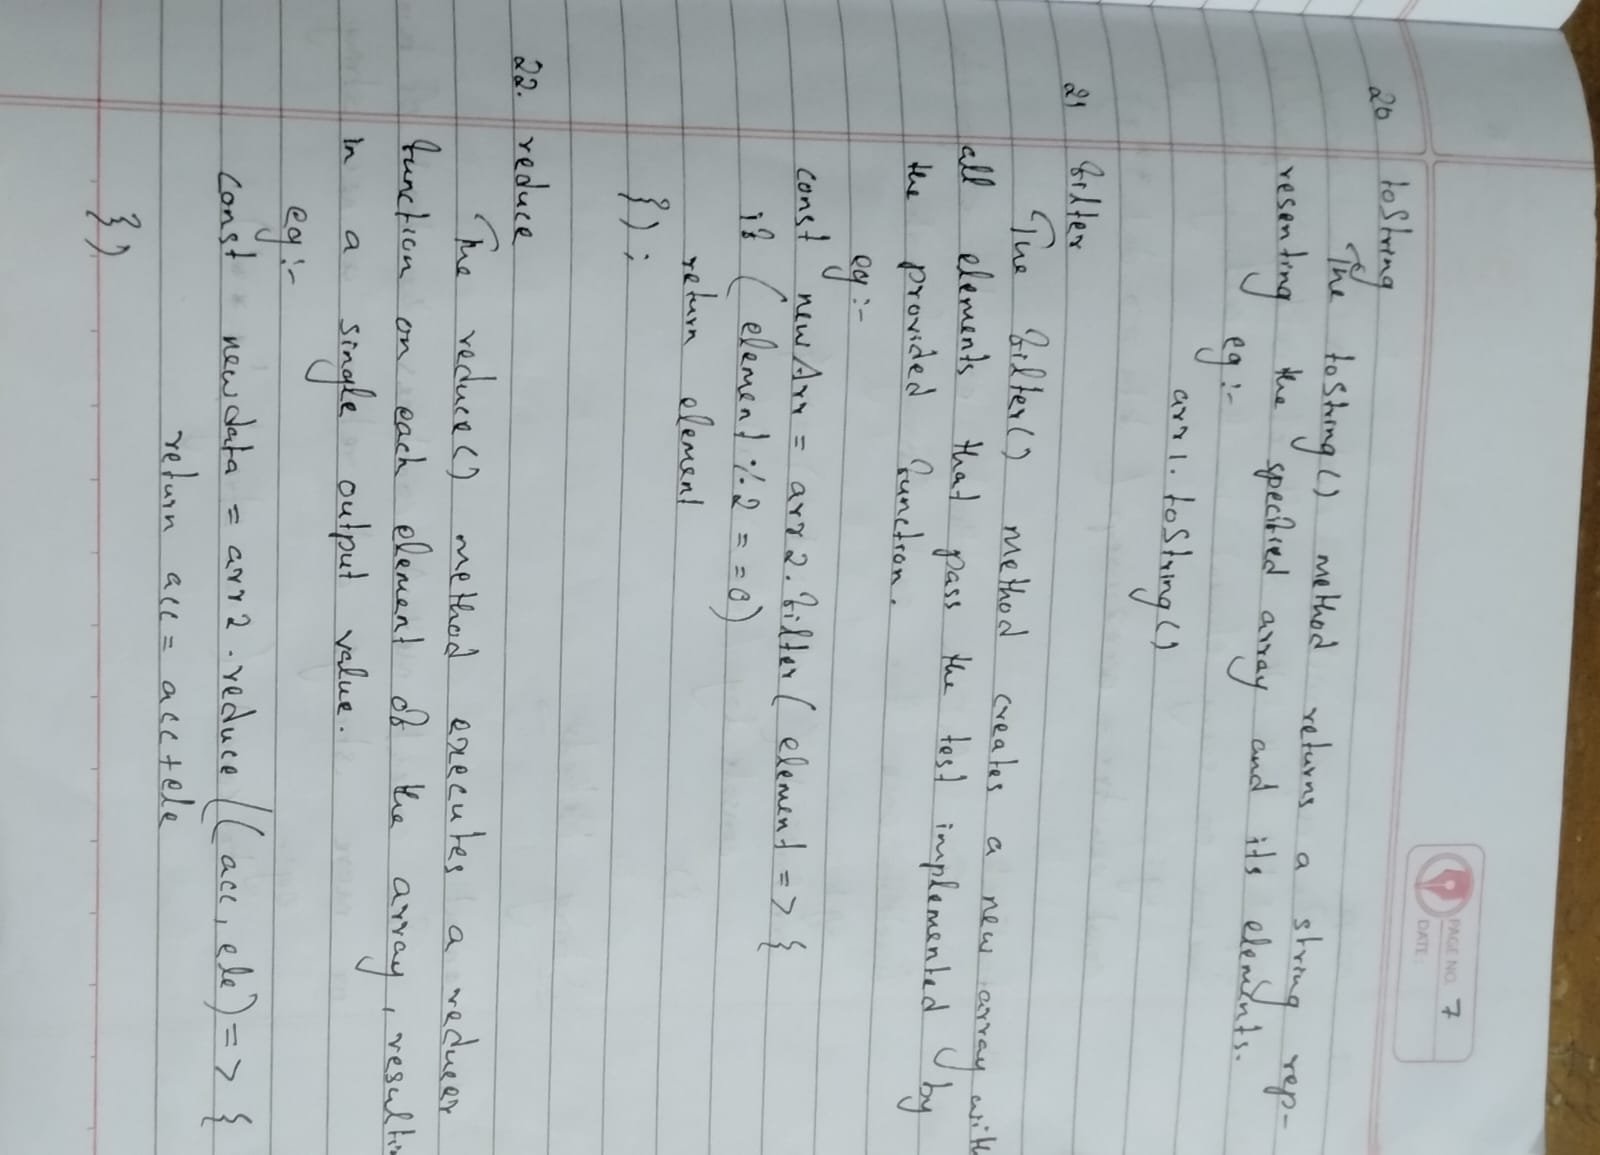 PAGE NO. 7
DATE:
20 toString
The toString() method returns a string rep-
resenting the specified array and its elements.
eg :-
arr1. toString()
21 filter
The filter() method creates a new array with
all elements that pass the test implemented by
the provided function.
eg :-
const newArr = arr2.filter( element => {
if ( element % 2 = = 0)
return element
}) ;
22. reduce
The reduce() method executes a reducer
function on each element of the array, resultin
in a single output value.
eg :-
const newdata = arr2 .reduce ((acc, ele) => {
return acc = acc+ele
})